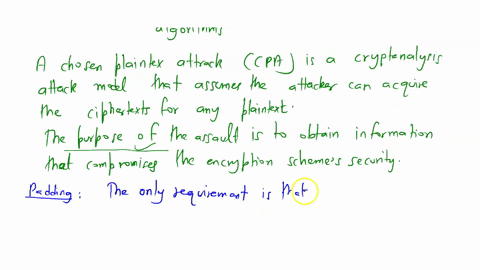 algorithms
A chosen plaintex attrack (CPA) is a cryptenalysis
attack model that assumes the attacker can acquire
the ciphertexts for any plaintext.
The purpose of the assault is to obtain information
that compromises the encryption scheme's security.
Padding: The only requirement is that